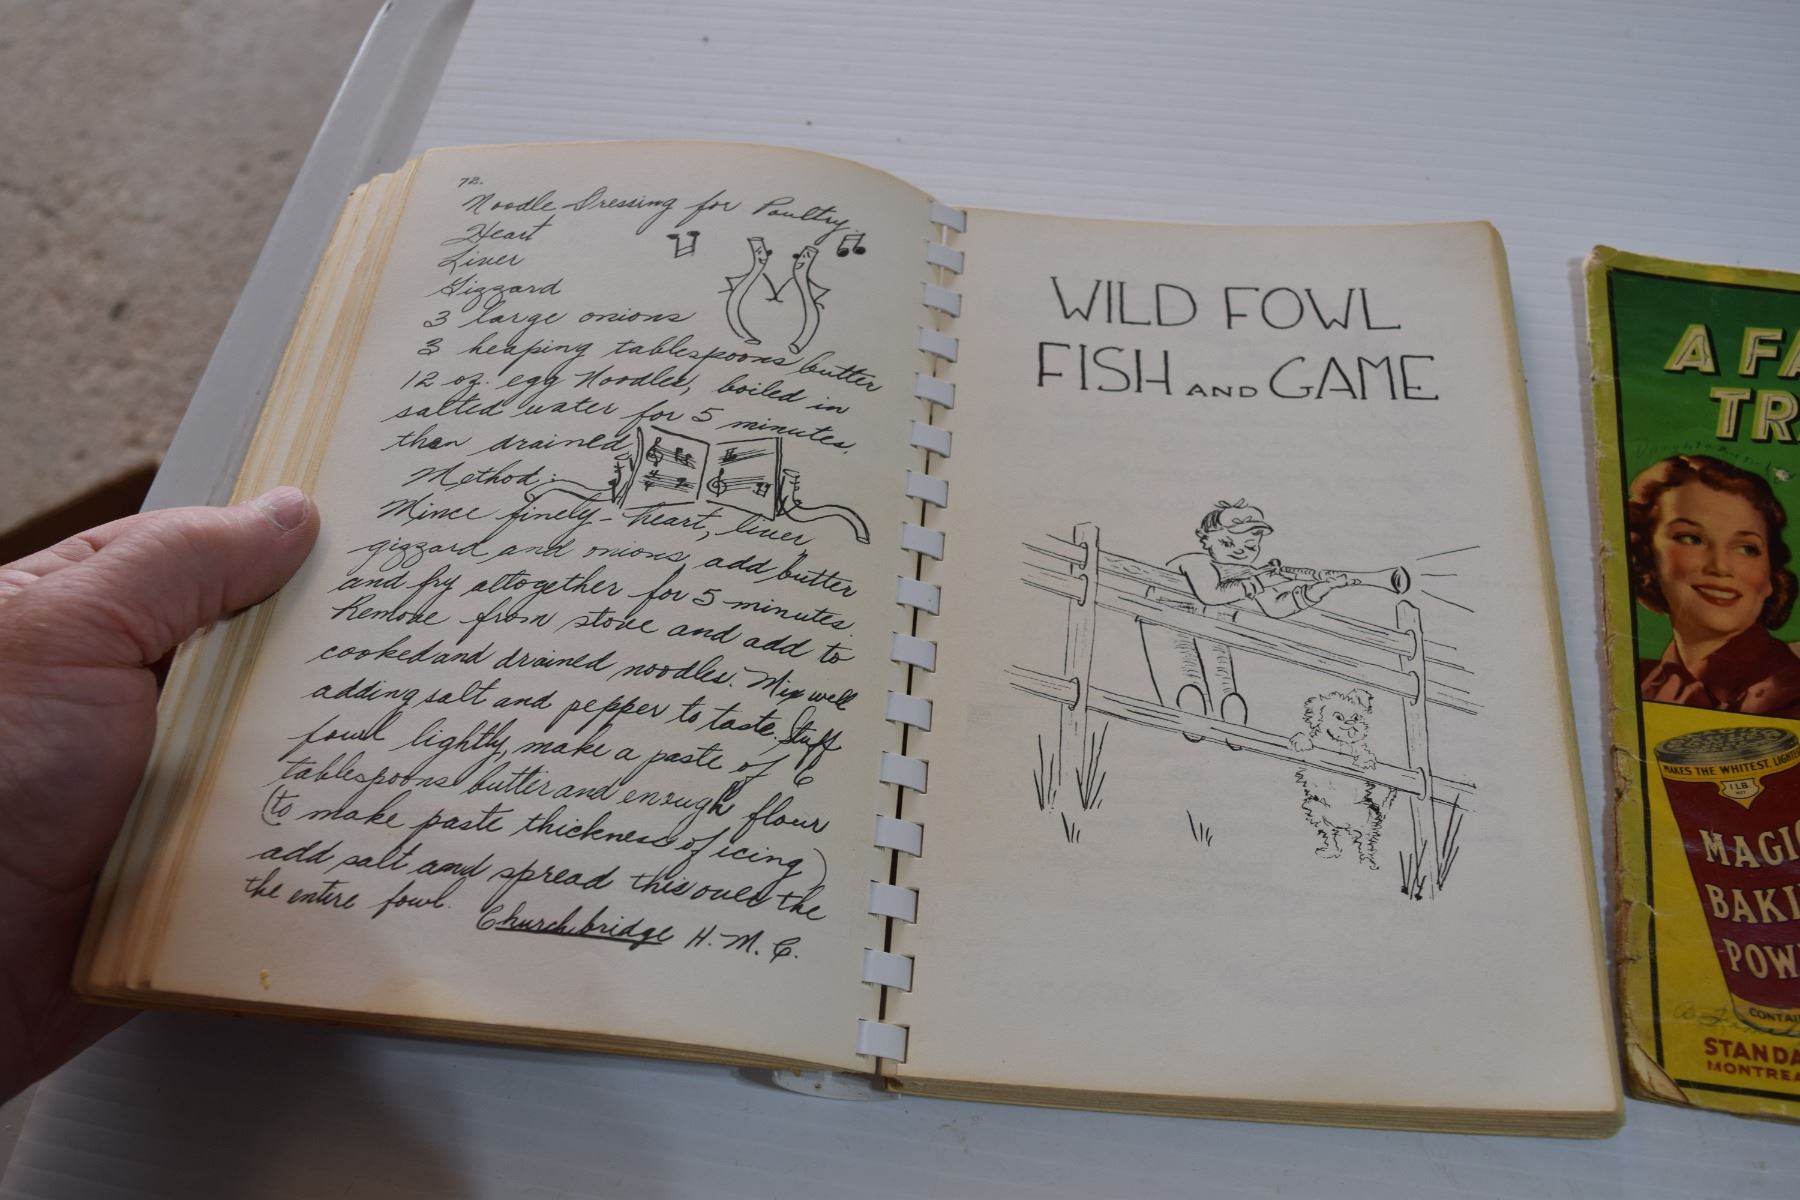 72.
Noodle Dressing for Poultry.
Heart
Liver
Gizzard
3 large onions
3 heaping tablespoons butter
12 oz. egg Noodles, boiled in
salted water for 5 minutes.
than drained
Method:
Mince finely - heart, liver
gizzard and onions, add butter
and fry altogether for 5 minutes.
Remove from stove and add to
cooked and drained noodles. Mix well
adding salt and pepper to taste. Stuff
fowl lightly, make a paste of 6
tablespoons butter and enough flour
(to make paste thickness of icing)
add salt and spread this over the
the entire fowl.
Churchbridge H. M. C.
WILD FOWL
FISH AND GAME
A FA
TR
MAKES THE WHITEST, LIGHTE
1 LB
NET
MAGIC
BAKI
POW
CONTAI
STANDA
MONTREA